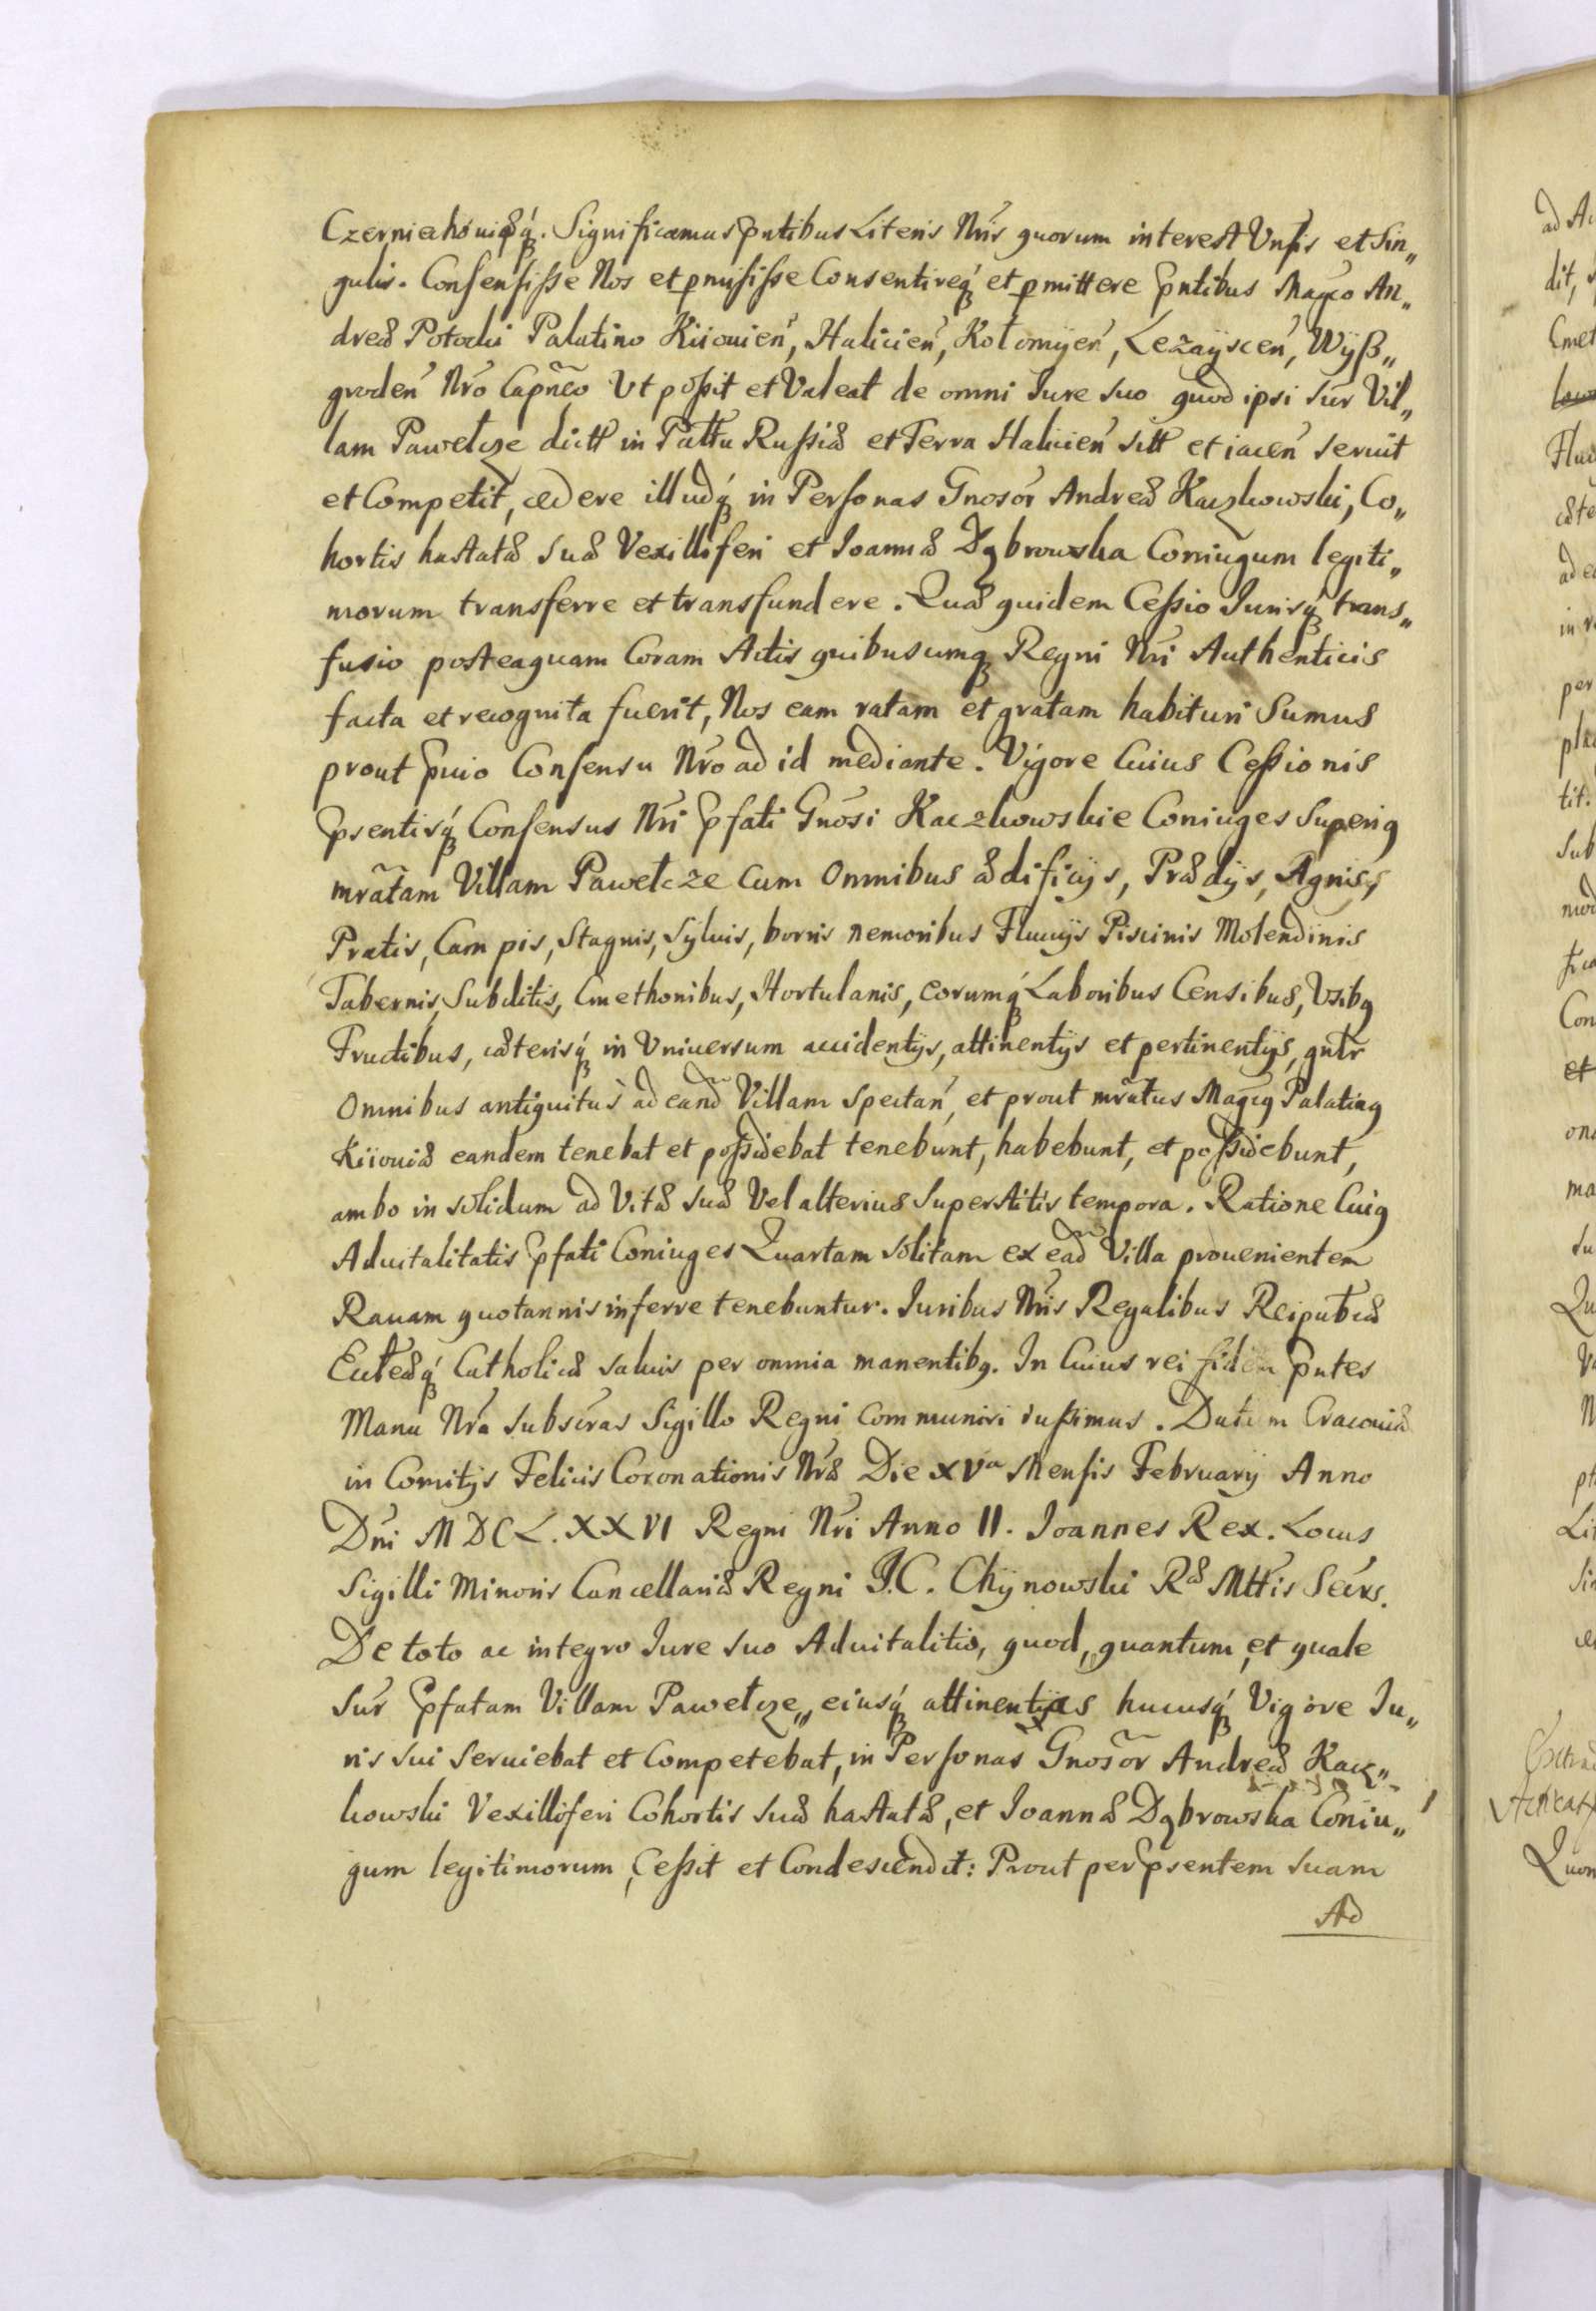 Czerniehoviæq́. Significamus pntibus Literis Nris quorum interest Vnsis et Sin„
gulis. Consensisse Nos et pmisisse Consentireq́ et pmittere pntibus Magco An„
dreæ Potocki Palatino Kiiovień, Halicień, Kołomÿeń, Lezaÿsceń, Wÿß„
grodeń Nro Capneo Vt possit et Valeat de omni Iure suo quod ipsi sur Vil„
lam Pawełcze dictt in Pallu Russiæ et Terra Halicień sitt et iaceń servit
et Competit, cedere illudq́ in Personas Gnosor Andreæ Kaczkowski, Co„
hortis hastatæ suæ Vexilliferi et Ioannæ Dąbrowska Coniugum legiti„
morum transferre et transfundere. Quæ quidem Cessio Iurisq́ trans„
fusio posteaquam Coram Actis quibuscumq Regni Nri Authenticis
facta et recognita fuerit, Nos eam ratam et gratam habituri Sumus
prout pvio Consensu Nro ad id mediante. Vigore Cuius Cessionis
psentisq́ Consensus Nri pfati Gnosi Kaczkowskie Coniuges Superiq
mratam Villam Pawełcze Cum Omnibus ædificijs, Prædijs, Agris,
Pratis, Campis, Stagnis, Sÿlvis, borris nemoribus Fluvijs Piscinis Molendinis
Tabernis, Subditis, Cmethonibus, Hortulanis, eorumq́ Laboribus Censibus, Vsibq
Fructibus, cæterisq́ in Vniversum accidentijs, attinentijs et pertinentijs, gntr
Omnibus antiquitus ad eand Villam spectań, et prout mratus Magcq Palatinq
Kiioviæ eandem tenebat et possidebat tenebunt, habebunt, et possidebunt,
ambo in solidum ad Vitæ suæ Vel alterius Superstitis tempora. Ratione Cuiq
Advitalitatis pfati Coniuges Quartam solitam ex ead Villa provenientem
Ravam quotannis inferre tenebuntur. Iuribus Nris Regalibus Reipubcæ
Ecclæq́ Catholicæ salvis per omnia manentibq. In Cuius rei fidem pntes
Manu Nra subscras Sigillo Regni communiri iussimus. Datum Cracoviæ
in Comitijs Felicis Coronationis Nræ Die XVa Mensis Februarij Anno
Dni MDCL.XXVI Regni Nri Anno II. Ioannes Rex. Locus
Sigilli Minoris Cancellariæ Regni J.C. Chÿnowski Ræ Mttis Secrs.
De toto ac integro Iure suo Advitalitio, quod, quantum, et quale
sur pfatam Villam Pawełcze„ eiusq́ attinentias hucusq́ Vigore Iu„
ris sui serviebat et Competebat, in Personas Gnosor Andreæ Kacz„
kowski Vexilliferi Cohortis suæ hastatæ, et Ioannæ Dąbrowska Coniu„
gum legitimorum, Cessit et Condescendit: Prout per psentem suam
Ad